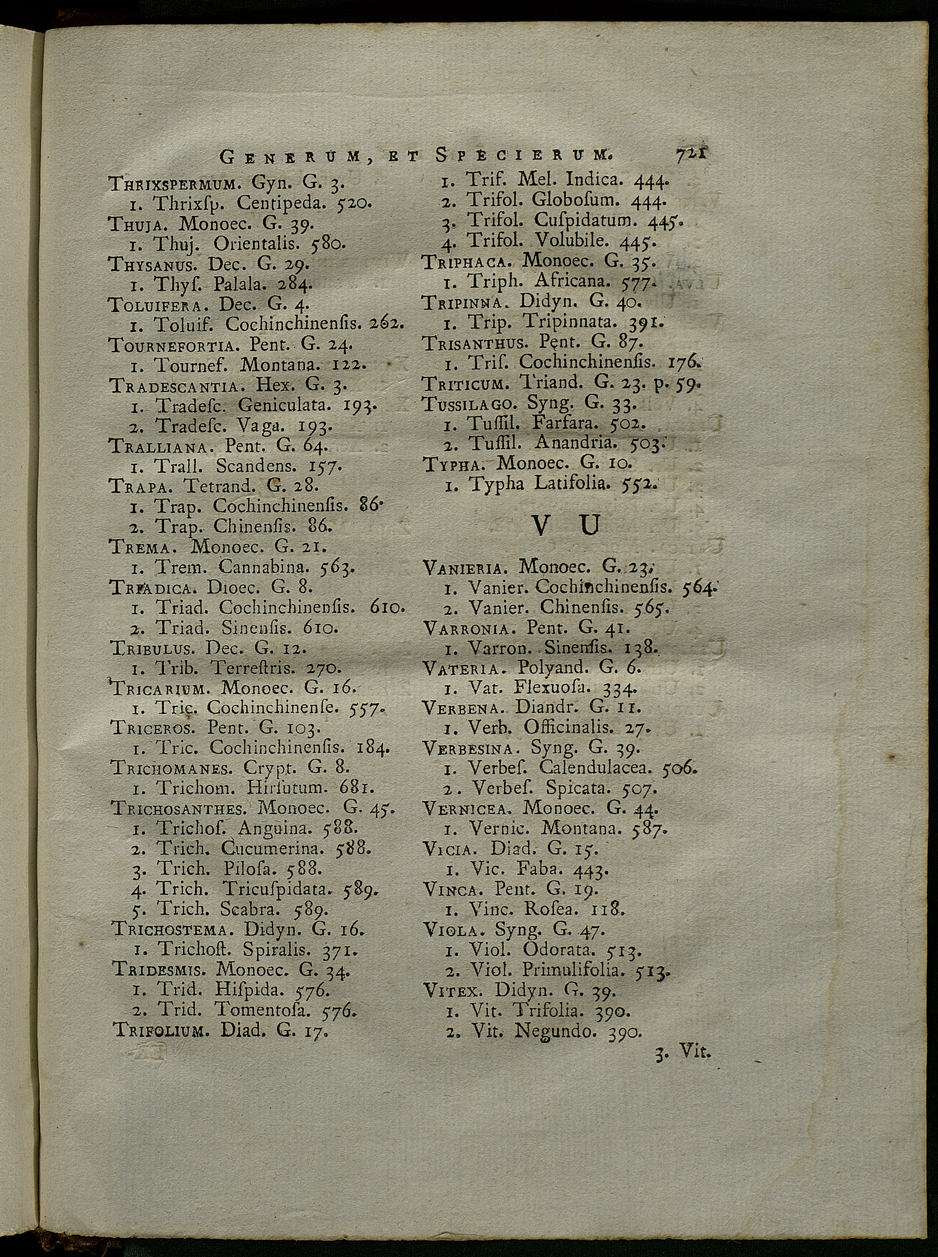 GENERUM, ET SPECIERUM. 721
THRIXSPERMUM. Gyn. G. 3.
1. Thrixſp. Centipeda. 520.
THUJA. Monoec. G. 39.
1. Thuj. Orientalis. 580.
THYSANUS. Dec. G. 29.
1. Thyſ. Palala. 284.
TOLUIFERA. Dec. G. 4.
1. Toluif. Cochinchinenſis. 262.
TOURNEFORTIA. Pent. G. 24.
1. Tournef. Montana. 122.
TRADESCANTIA. Hex. G. 3.
1. Tradeſc. Geniculata. 193.
2. Tradeſc. Vaga. 193.
TRALLIANA. Pent. G. 64.
1. Trall. Scandens. 157.
TRAPA. Tetrand. G. 28.
1. Trap. Cochinchinenſis. 86.
2. Trap. Chinenſis. 86.
TREMA. Monoec. G. 21.
1. Trem. Cannabina. 563.
TRIADICA. Dioec. G. 8.
1. Triad. Cochinchinenſis. 610.
2. Triad. Sinenſis. 610.
TRIBULUS. Dec. G. 12.
1. Trib. Terreſtris. 270.
TRICARIUM. Monoec. G. 16.
1. Tric. Cochinchinenſe. 557.
TRICEROS. Pent. G. 103.
1. Tric. Cochinchinenſis. 184.
TRICHOMANES. Crypt. G. 8.
1. Trichom. Hirſutum. 681.
TRICHOSANTHES. Monoec. G. 45.
1. Trichoſ. Anguina. 588.
2. Trich. Cucumerina. 588.
3. Trich. Piloſa. 588.
4. Trich. Tricuſpidata. 589.
5. Trich. Scabra. 589.
TRICHOSTEMA. Didyn. G. 16.
1. Trichoſt. Spiralis. 371.
TRIDESMIS. Monoec. G. 34.
1. Trid. Hiſpida. 576.
2. Trid. Tomentoſa. 576.
TRIFOLIUM. Diad. G. 17.
1. Trif. Mel. Indica. 444.
2. Trifol. Globoſum. 444.
3. Trifol. Cuſpidatum. 445.
4. Trifol. Volubile. 445.
TRIPHACA. Monoec. G. 35.
1. Triph. Africana. 577.
TRIPINNA. Didyn. G. 40.
1. Trip. Tripinnata. 391.
TRISANTHUS. Pent. G. 87.
1. Triſ. Cochinchinenſis. 176.
TRITICUM. Triand. G. 23. p. 59.
TUSSILAGO. Syng. G. 33.
1. Tuſſil. Farfara. 502.
2. Tuſſil. Anandria. 503.
TYPHA. Monoec. G. 10.
1. Typha Latifolia. 552.
V U
VANIERIA. Monoec. G. 23.
1. Vanier. Cochinchinenſis. 564.
2. Vanier. Chinenſis. 565.
VARRONIA. Pent. G. 41.
1. Varron. Sinenſis. 138.
VATERIA. Polyand. G. 6.
1. Vat. Flexuoſa. 334.
VERBENA. Diandr. G. 11.
1. Verb. Officinalis. 27.
VERBESINA. Syng. G. 39.
1. Verbeſ. Calendulacea. 506.
2. Verbeſ. Spicata. 507.
VERNICEA. Monoec. G. 44.
1. Vernic. Montana. 587.
VICIA. Diad. G. 15.
1. Vic. Faba. 443.
VINCA. Pent. G. 19.
1. Vinc. Roſea. 118.
VIOLA. Syng. G. 47.
1. Viol. Odorata. 513.
2. Viol. Primulifolia. 513.
VITEX. Didyn. G. 39.
1. Vit. Trifolia. 390.
2. Vit. Negundo. 390.
3. Vit.